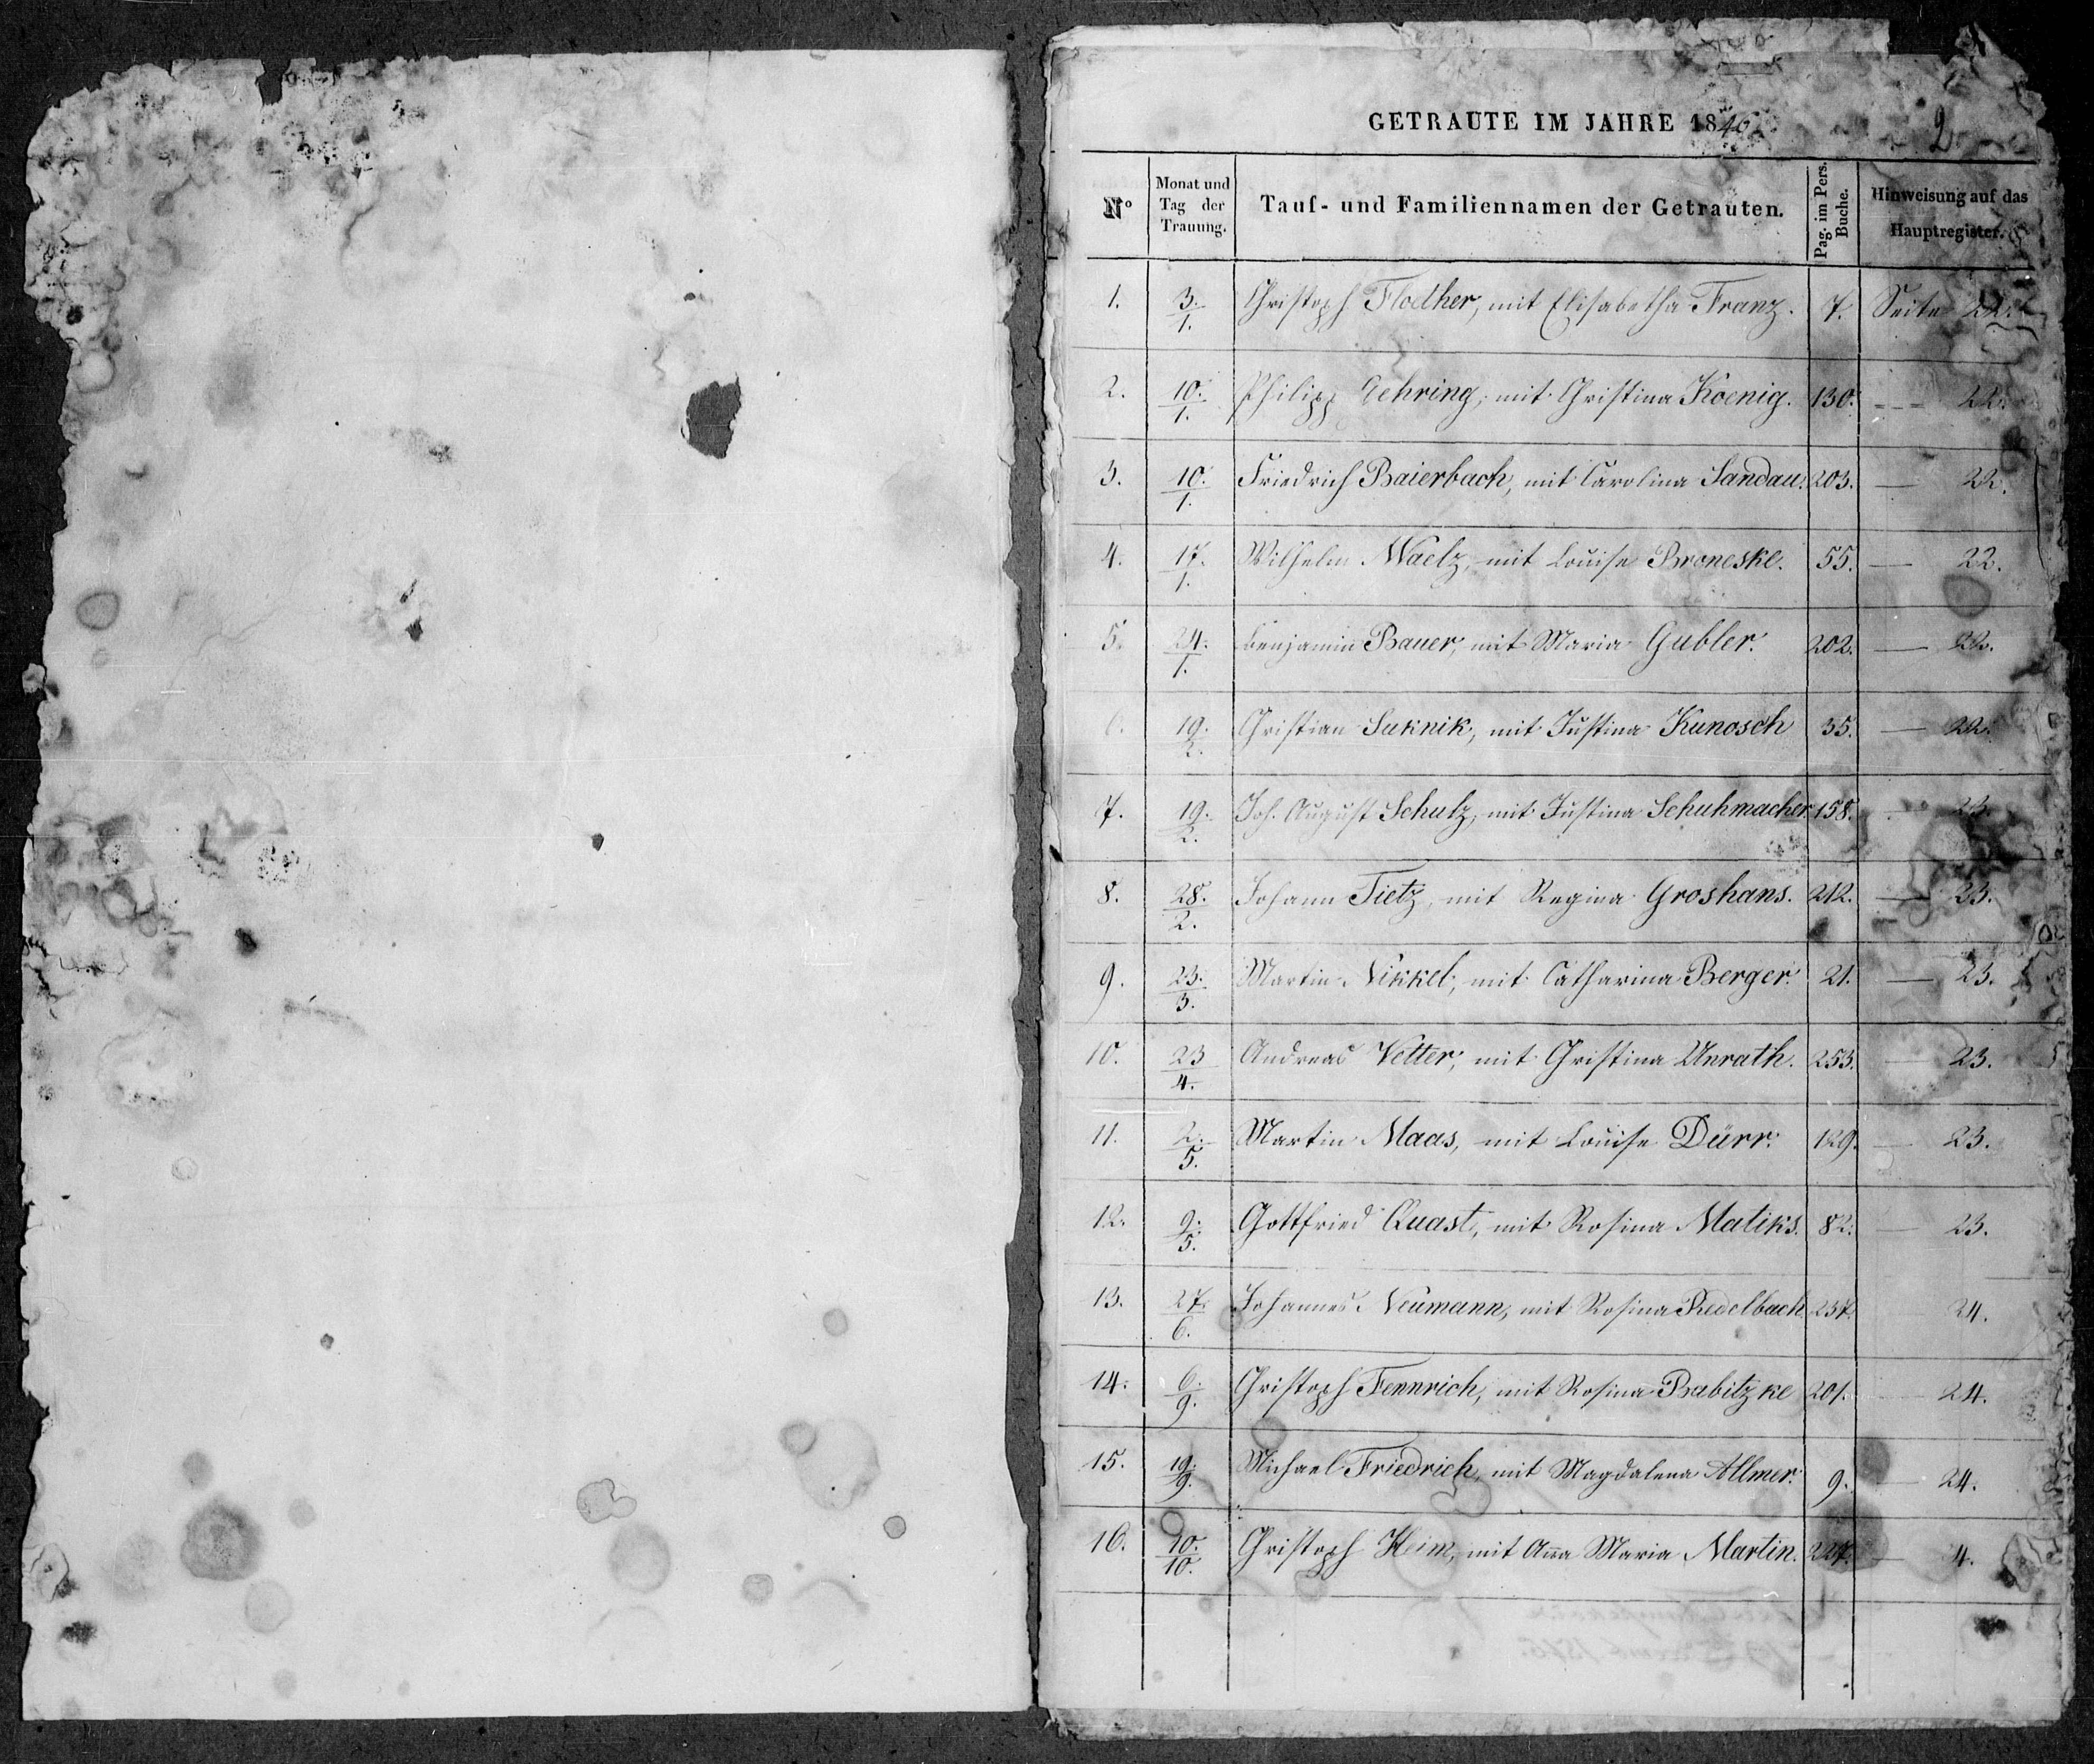 GETRAUTE IM JAHRE 1846.
2
Nº
Monat und Tag der Trauung.
Tauf- und Familiennamen der Getrauten.
Pag. im Pers. Buche.
Hinweisung auf das Hauptregister.
1. 3./1. Christoph Flodher, mit Elisabetha Franz. 7. Seite 22.
2. 10./1. Philipp Gehring, mit Christina Koenig. 130. --- 22.
3. 10./1. Friedrich Baierbach, mit Carolina Sandau. 203. — 22.
4. 17./1. Wilhelm Maelz, mit Louise Broneske. 55. — 22.
5. 24./1. Benjamin Bauer, mit Maria Gubler. 202. — 22.
6. 19./2. Christian Suknik, mit Justina Kunosch 35. — 22.
7. 19./2. Joh. August Schulz, mit Justina Schuhmacher. 158. — 23.
8. 28./2. Johann Tietz, mit Regina Groshans. 212. — 23.
9. 23./3. Martin Nikkel, mit Catharina Berger. 21. — 23.
10. 23/4. Andreas Vetter, mit Christina Unrath. 253. — 23.
11. 2./5. Martin Maas, mit Louise Dürr. 129. — 23.
12. 9./5. Gottfried Quast, mit Rosina Matiks. 82. — 23.
13. 27./6. Johannes Neumann, mit Rosina Redelbach 237. 24.
14. 6./9. Christoph Fennrich, mit Rosina Babitzke 201. — 24.
15. 19./9. Michael Friedrich, mit Magdalena Allmer. 9. — 24.
16. 10./10. Christoph Heim, mit Anna Maria Martin. 227. — 4.